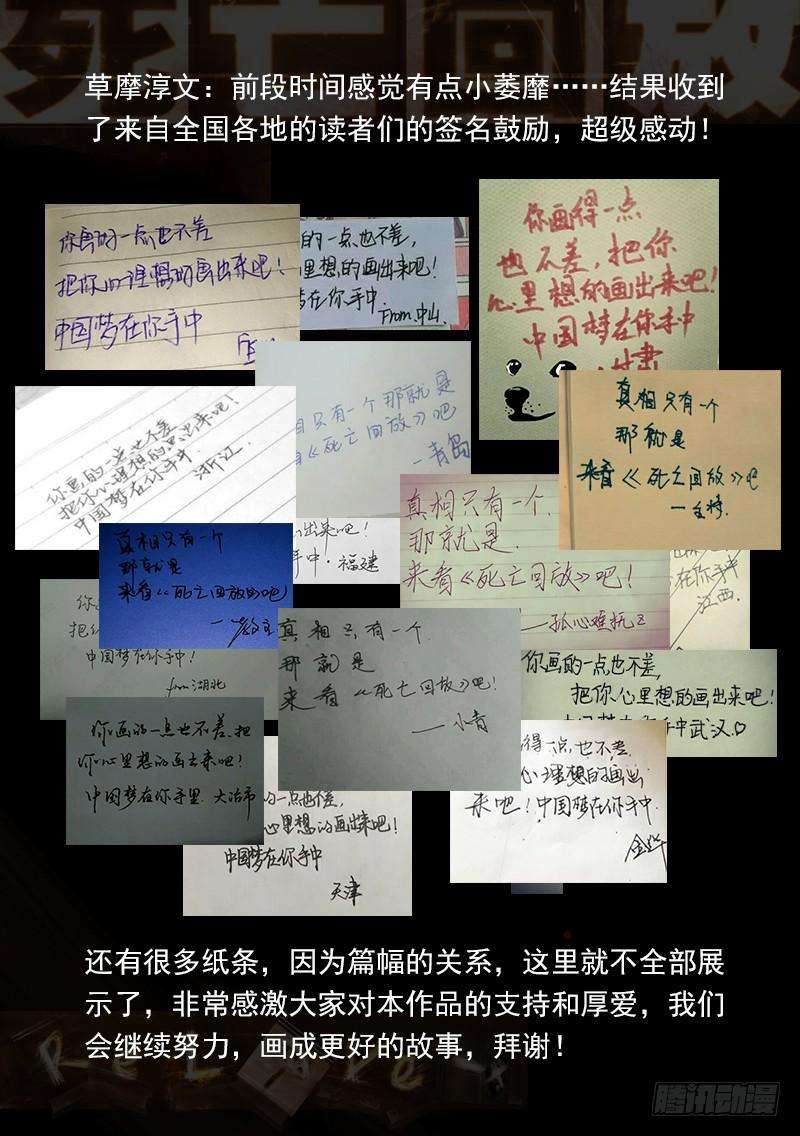 死亡回放
草摩淳文：前段时间感觉有点小萎靡……结果收到
了来自全国各地的读者们的签名鼓励，超级感动！
你画的一点也不差
把你心理想的画出来吧！
中国梦在你手中
的一点也不差，
里想的画出来吧！
梦在你手中
From 中山.
你画得一点
也不差，把你
心里想的画出来吧！
中国梦在你手中
甘肃
你画的一点也不差
把你心理想的画出来吧！
中国梦在你手中
浙江
只有一个那就是
《死亡回放》吧
—青岛
真相只有一个
那就是
来看《死亡回放》吧
真相只有一个
那就是
来看《死亡回放》吧
真相只有一个.
那就是.
来看《死亡回放》吧！
画出来吧！
手中·福建
在你手中
江西.
中国梦在你手中！
from 湖北
真相只有一个.
那就是
来看《死亡回放》吧！
——小青
你画的一点也不差，
把你心里想的画出来吧！
手中武汉♡
你画的一点也不差.把
你心里想的画出来吧！
中国梦在你手里.大冶市
得一点，也不差.
心理想的画出
来吧！中国梦在你手中.
的一点也不差，
心里想的画出来吧！
中国梦在你手中
天津
还有很多纸条，因为篇幅的关系，这里就不全部展
示了，非常感激大家对本作品的支持和厚爱，我们
会继续努力，画成更好的故事，拜谢！
腾讯动漫